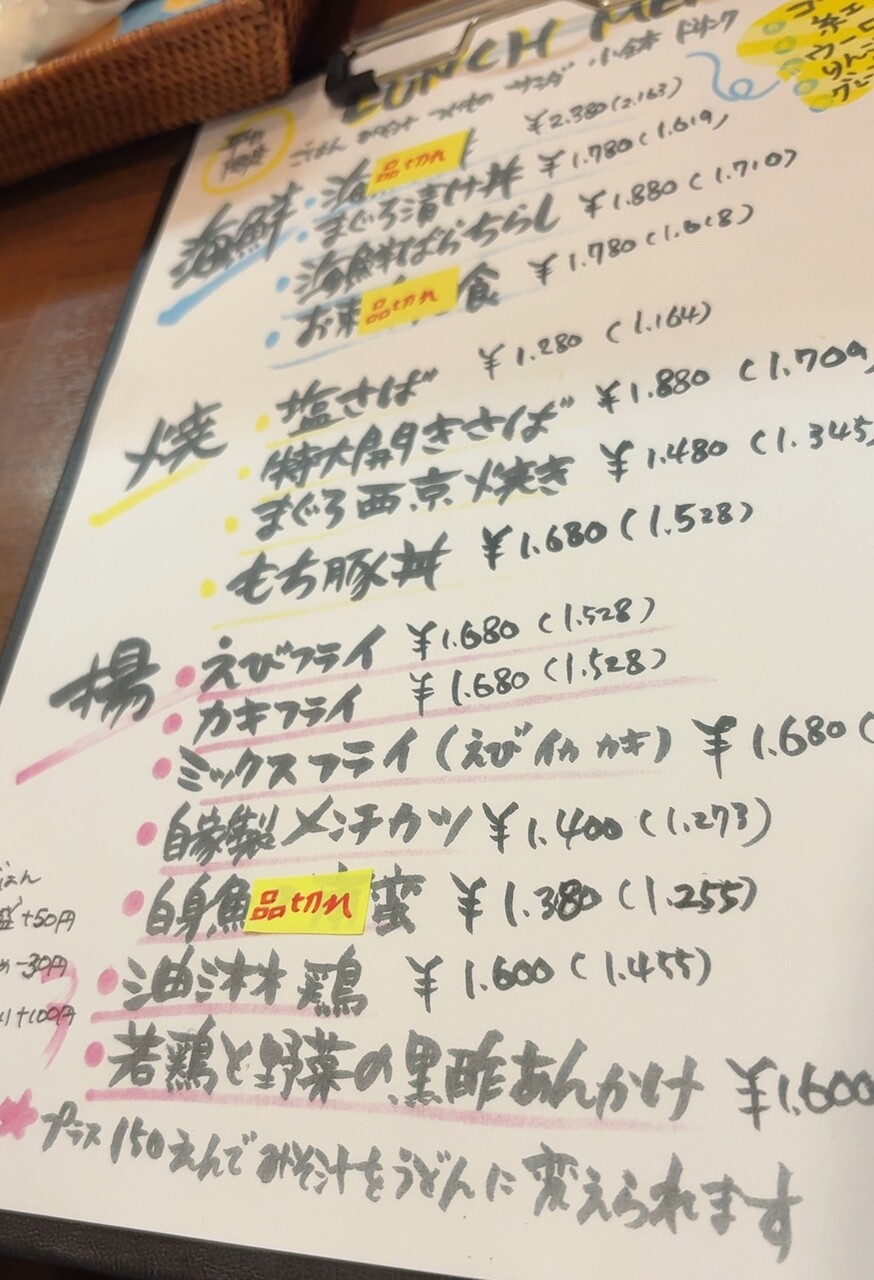 LUNCH ME
ごはん みそ汁 つけもの サラダ 小鉢 ドリンク
ウーロ
りんご
海鮮
・海 品切れ ¥2.380(2.163)
・まぐろ漬け丼 ¥1.780(1.619)
・海鮮ばらちらし ¥1.880(1.710)
・お 品切れ 食 ¥1.780(1.618)
焼
・塩さば ¥1.280(1.164)
・特大開きさば ¥1.880(1.709
・まぐろ西京焼き ¥1.480(1.345
・もち豚丼 ¥1.680(1.528)
揚
・えびフライ ¥1.680(1.528)
・カキフライ ¥1.680(1.528)
・ミックスフライ(えび イカ カキ) ¥1.680(
・自家製メンチカツ ¥1.400(1.273)
・白身魚 品切れ ¥1.380(1.255)
・油淋鶏 ¥1.600(1.455)
・若鶏と野菜の黒酢あんかけ ¥1.600
ごはん
盛 +50円
-30円
+100円
プラス150えんでみそ汁をうどんに変えられます